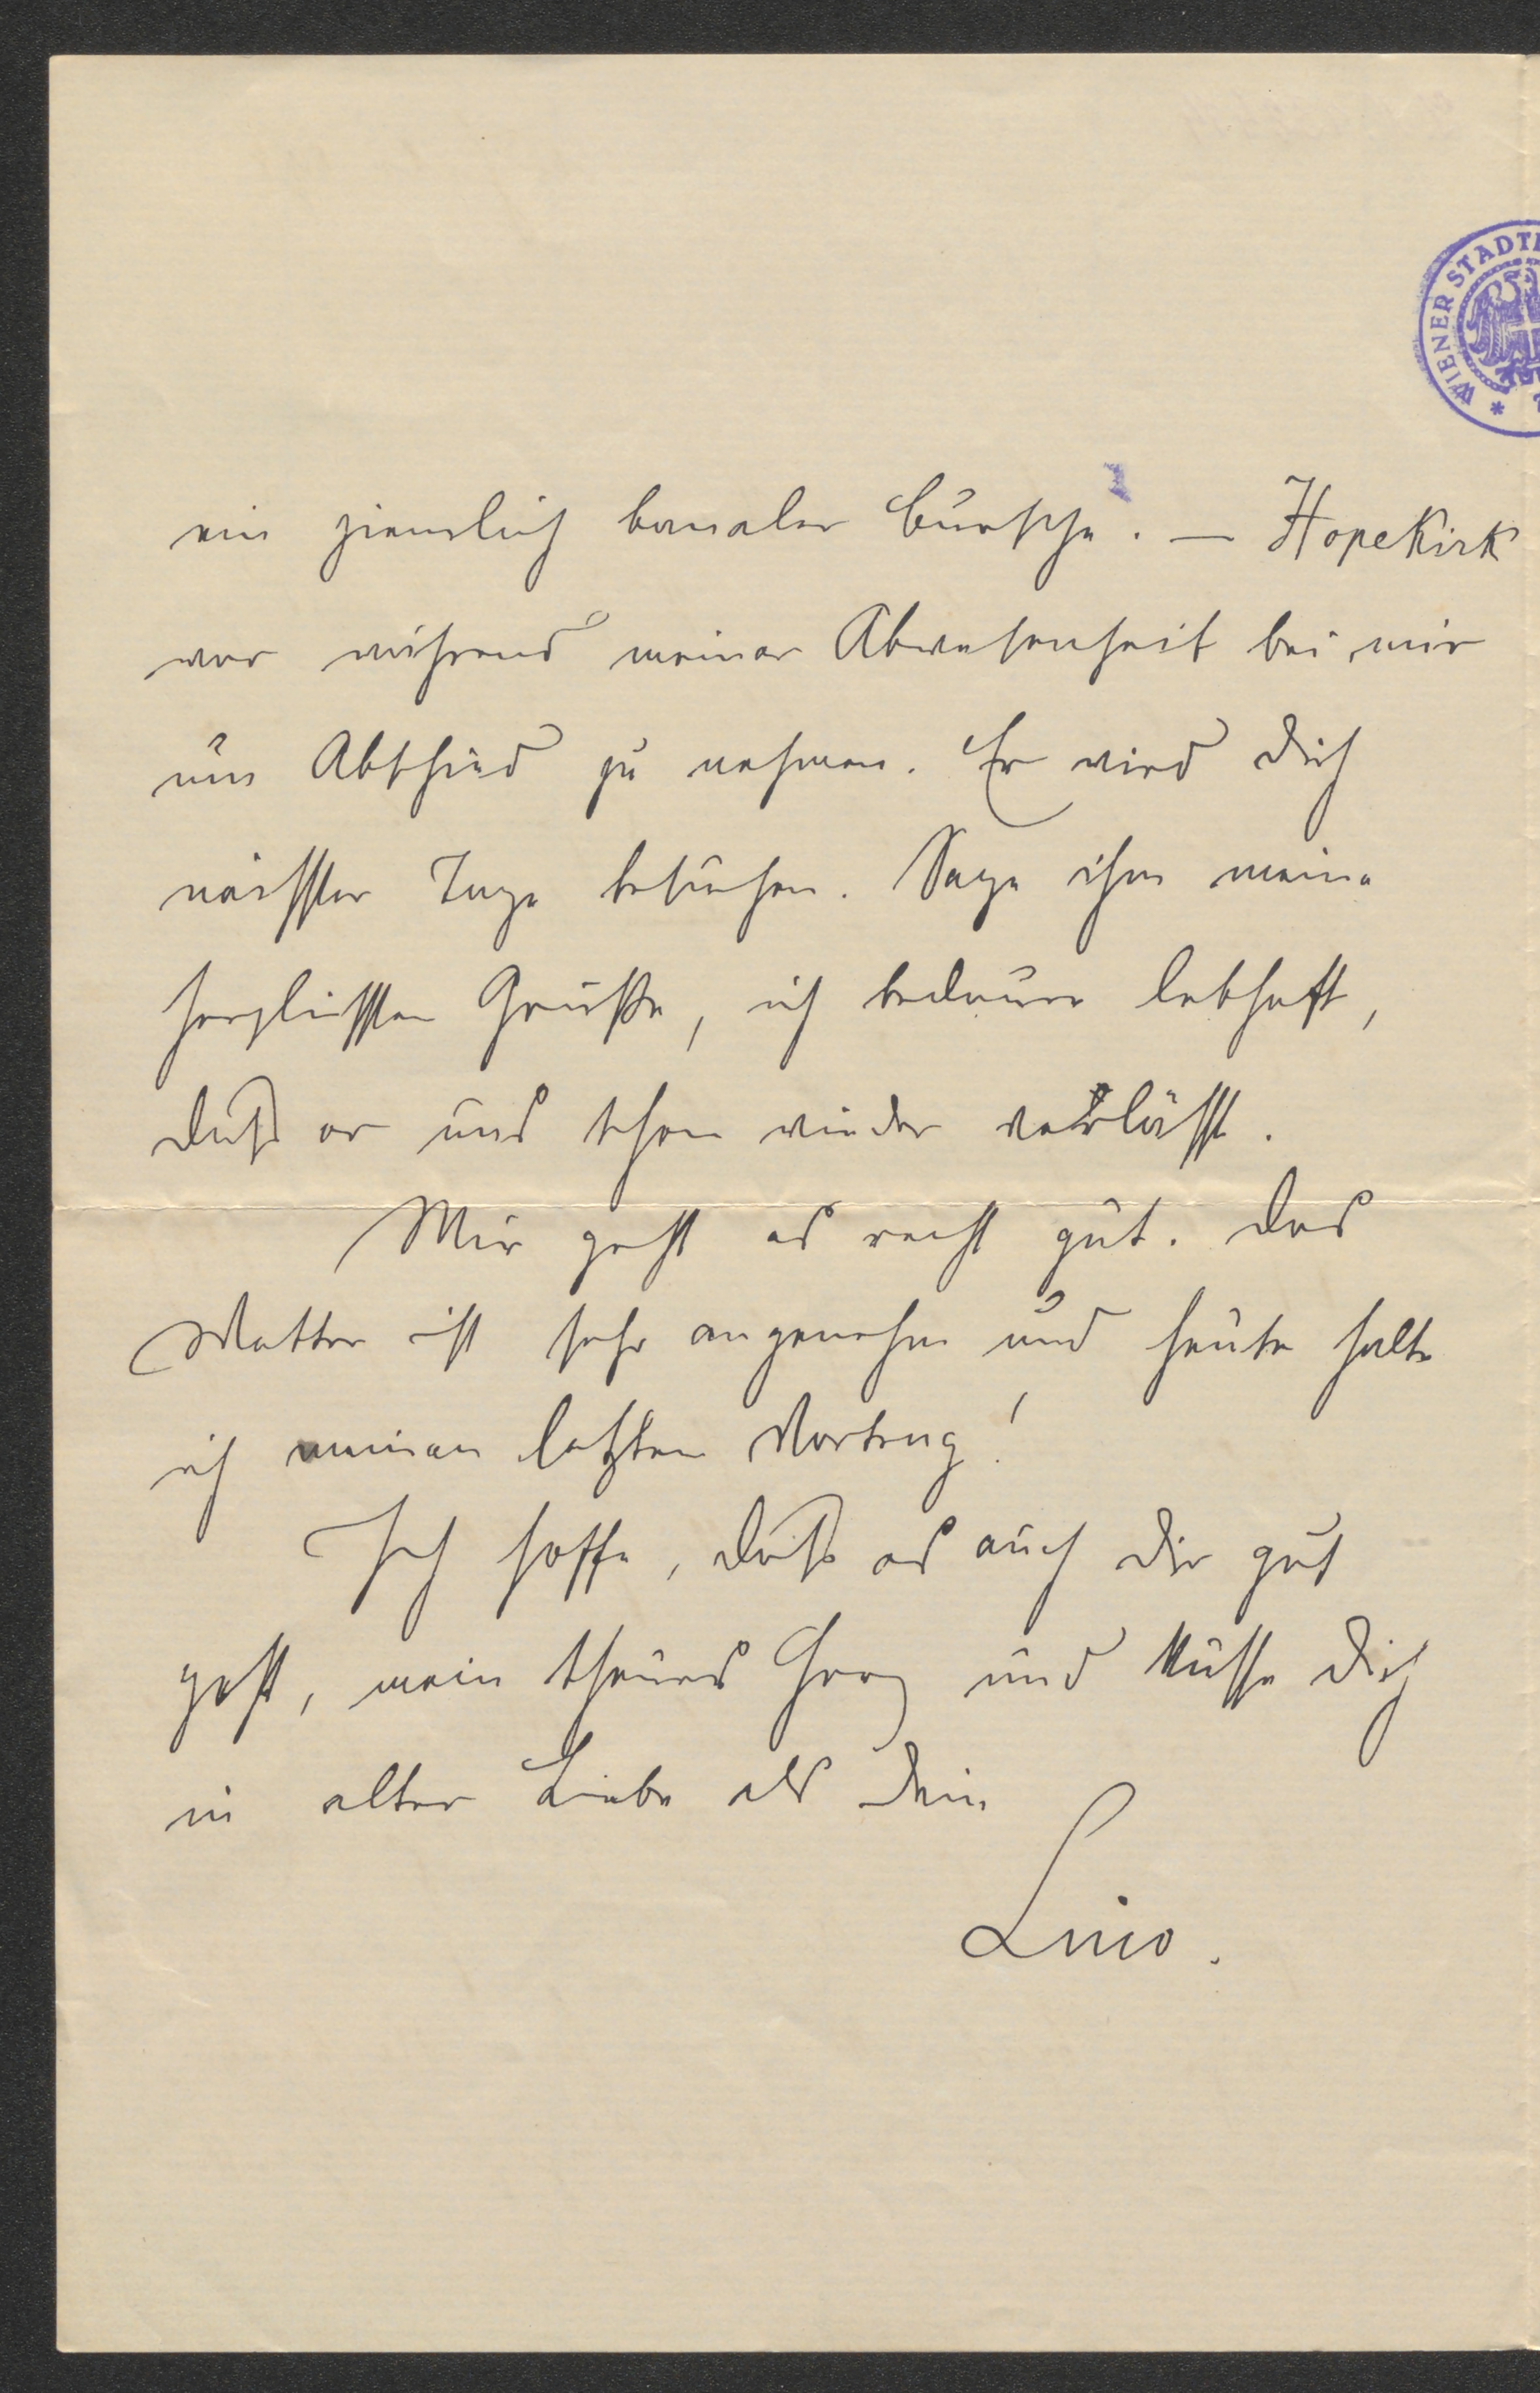 WIENER STADT
ein ziemlich banaler Bursche. — Hopekirk
war während meiner Abwesenheit bei mir
um Abschied zu nehmen. Er wird Dich
nächster Tage besuchen. Sage ihm meine
herzlichsten Grüße, ich bedaure lebhaft,
daß er uns schon wieder verläßt.
Mir geht es recht gut. Das
Wetter ist sehr angenehm und heute halte
ich meinen letzten Vortrag!
Ich hoffe, daß es auch Dir gut
geht, mein theures Herz und küsse Dich
in alter Liebe als Dein
Lino.